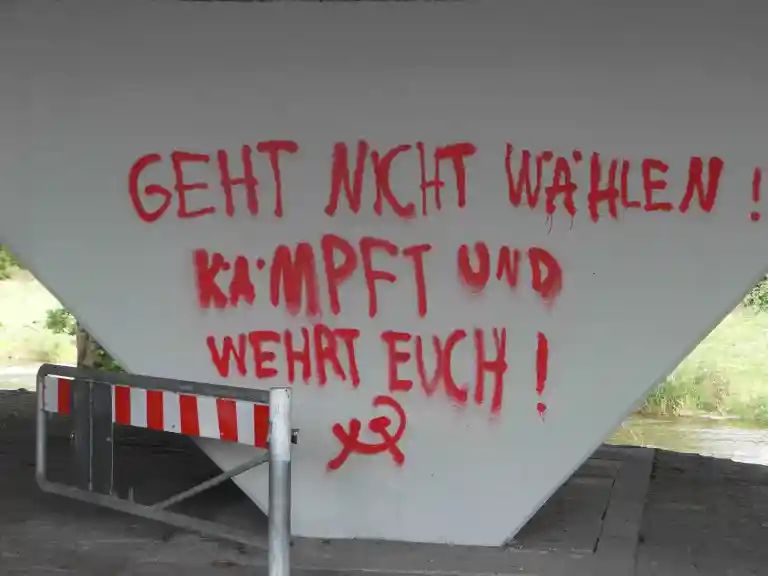 GEHT NICHT WÄHLEN!
KÄMPFT UND
WEHRT EUCH!